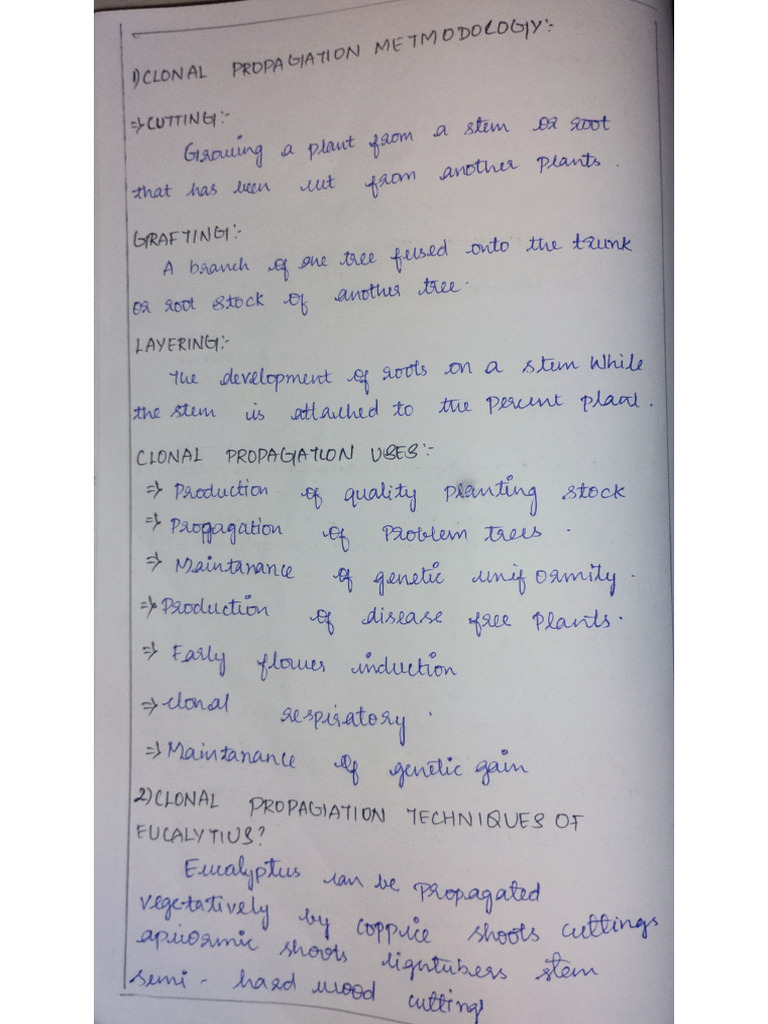 1) CLONAL PROPAGATION METMODOLOGY:-
⇒ CUTTING:-
Growing a plant from a stem or root
that has been cut from another plants.
GRAFTING:-
A branch of one tree fused onto the trunk
or root stock of another tree.
LAYERING:-
The development of roots on a stem While
the stem is attached to the percent plant.
CLONAL PROPAGATION USES:-
⇒ Production of quality planting stock
⇒ Propagation of Problem trees.
⇒ Maintanance of genetic uniformity.
⇒ Production of disease free Plants.
⇒ Early flower induction
⇒ clonal respiratory.
⇒ Maintanance of genetic gain
2) CLONAL PROPAGATION TECHNIQUES OF
EUCALYTIUS?
Eucalyptus can be propagated
vegetatively by coppice shoots cuttings
shoots ligntubers stem
semi-hard wood cuttings